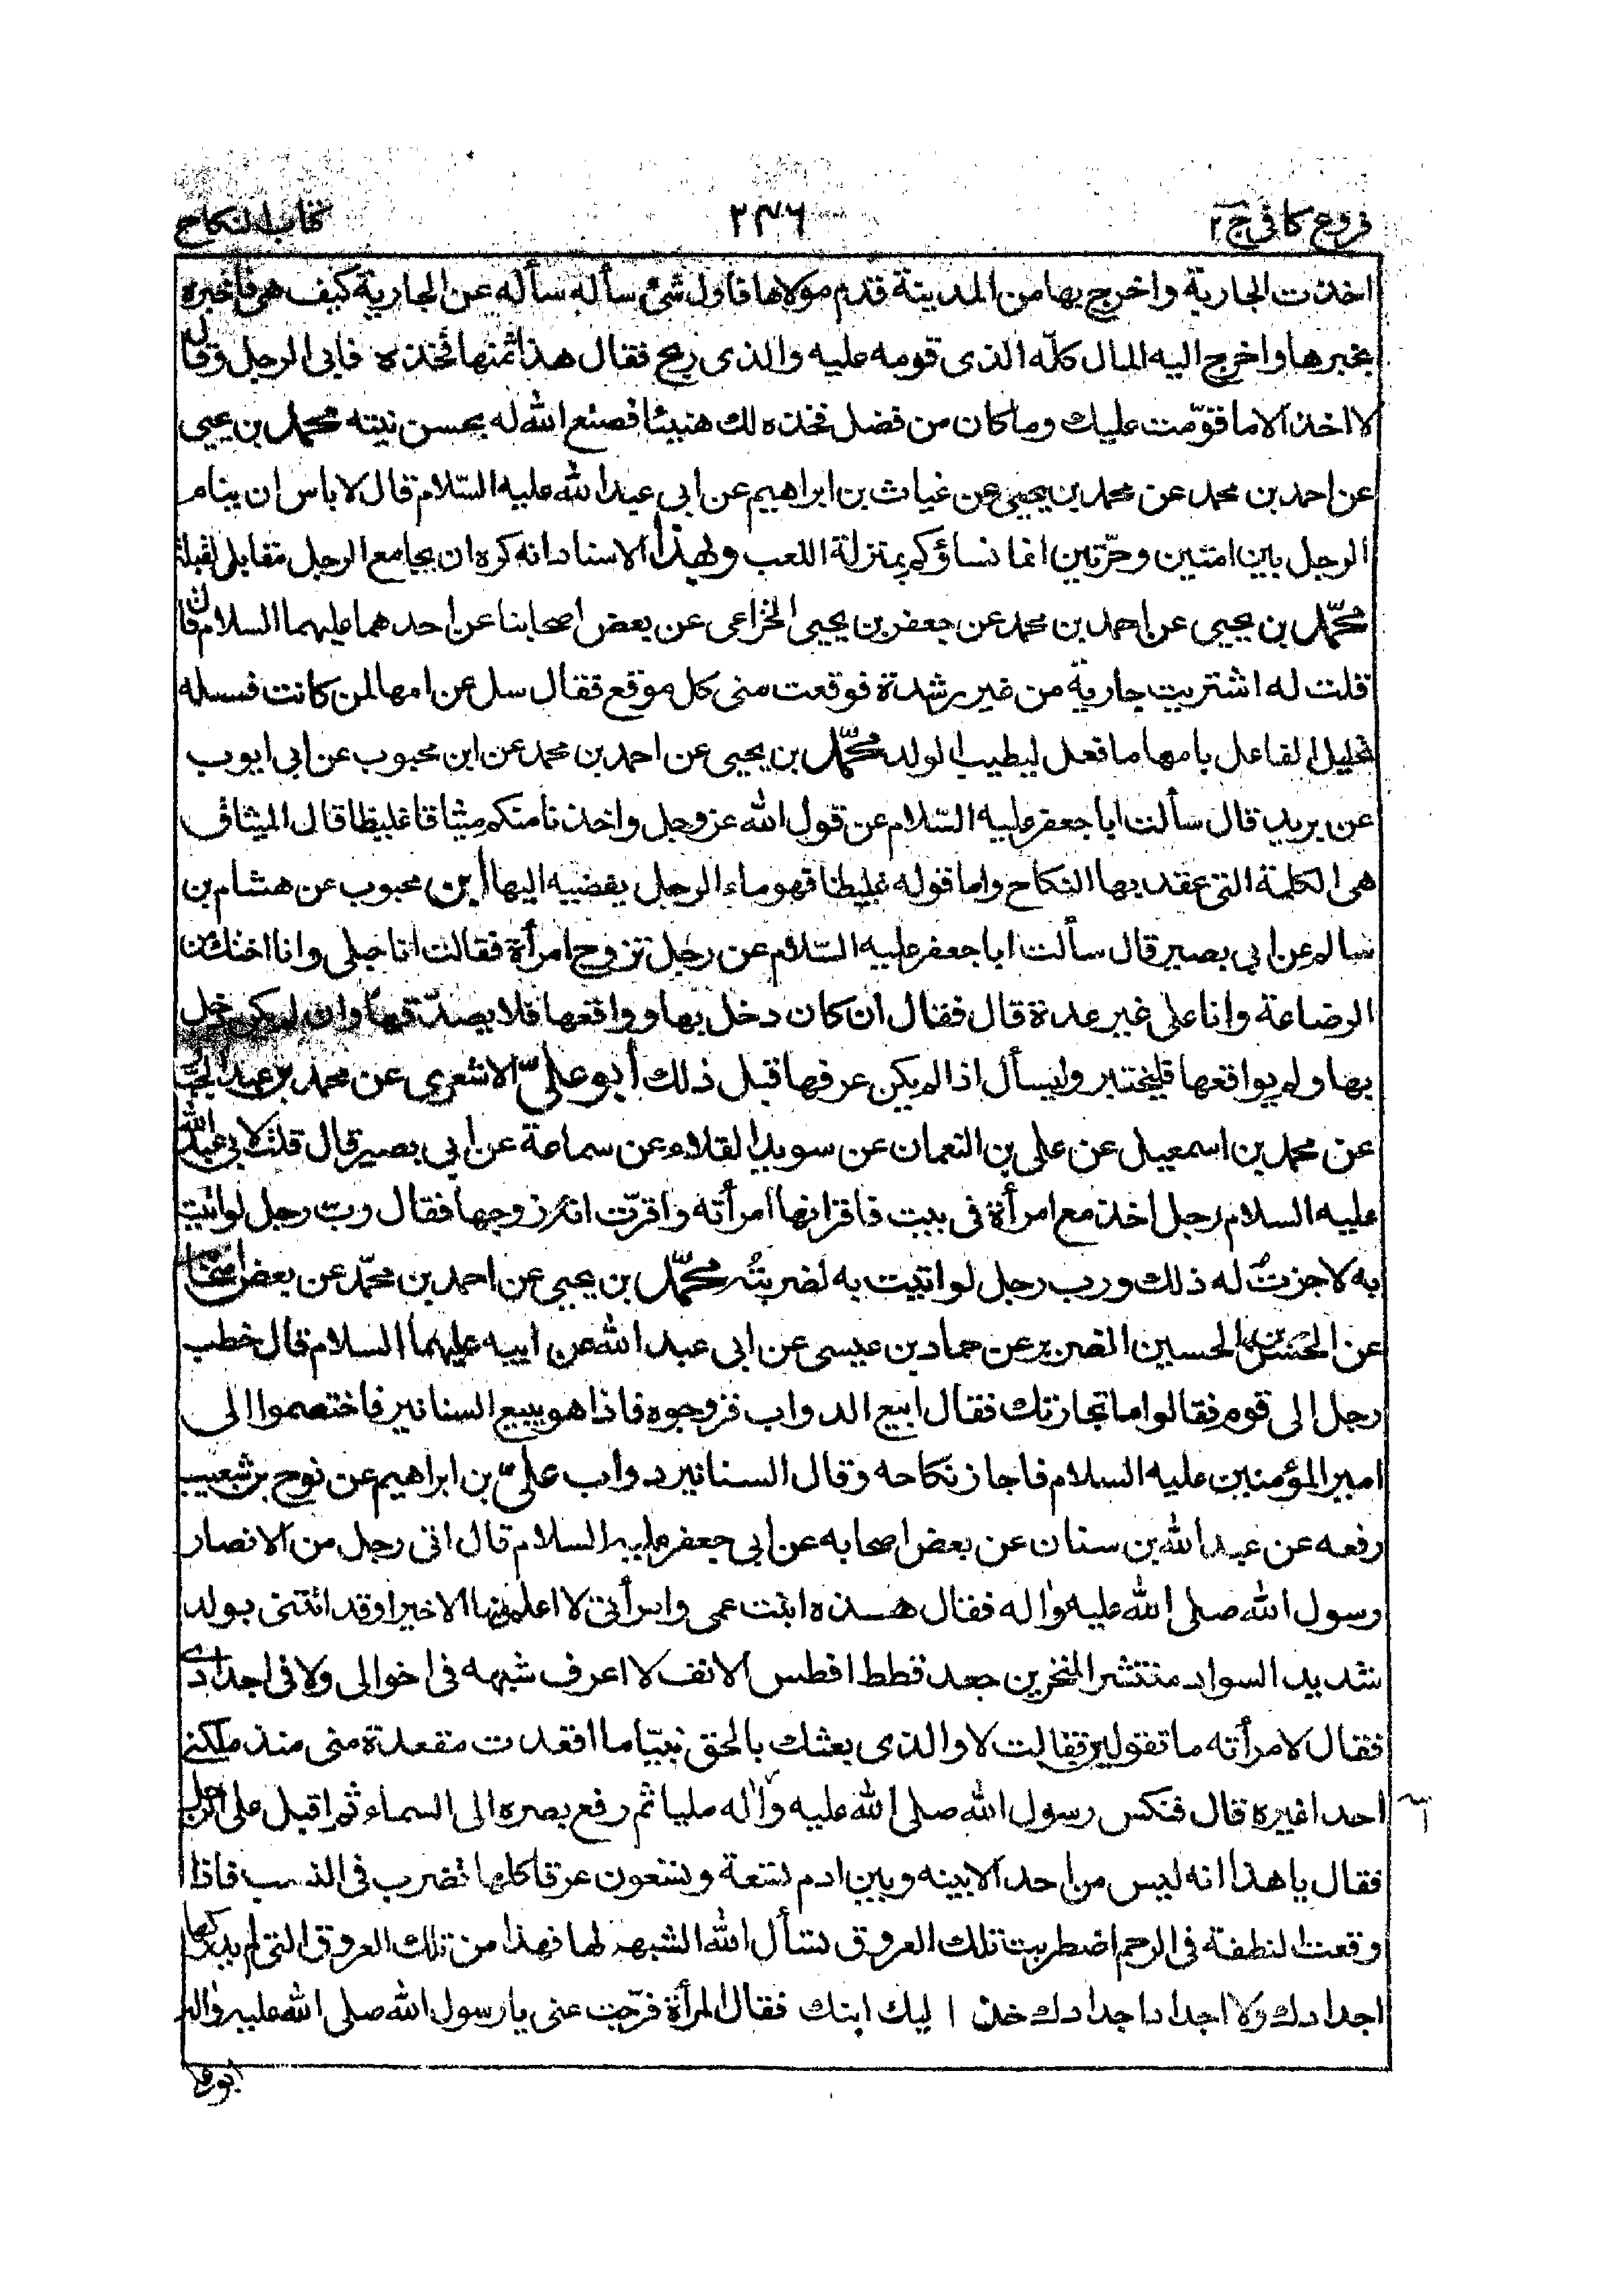 فروع كافى ج٢
٢٤٦
كتاب النكاح
اخذت الجارية واخرج بها من المدينة قدم مولاها فاول شئ سأله سأله عن الجارية كيف هى فاخبره
بخبرها واخرج اليه المال كلّه الذى قومه عليه والذى ربح فقال هذا ثمنها فخذه فابى الرجل وقال
لا اخذ الا ما قوّمت عليك وما كان من فضل فخذه لك هنيئا فصنع الله له بحسن نيته محمد بن يحيى
عن احمد بن محمد عن محمد بن يحيى عن غياث بن ابراهيم عن ابى عبد الله عليه السّلام قال لا باس ان ينام
الرجل بين امتين وحرّتين انما نساؤكم بمنزلة اللعب وبهذا الاسناد انه كره ان يجامع الرجل مقابل القبلة
محمّد بن يحيى عن احمد بن محمد عن جعفر بن يحيى الخزاعى عن بعض اصحابنا عن احدهما عليهما السلام قال
قلت له اشتريت جارية من غير رشدة فوقعت منى كل موقع فقال سل عن امها لمن كانت فسله
تحليل الفاعل بامها ما فعل ليطيب الولد محمّد بن يحيى عن احمد بن محمد عن ابن محبوب عن ابى ايوب
عن بريد قال سألت ابا جعفر عليه السّلام عن قول الله عز وجل واخذنا منكم ميثاقا غليظا قال الميثاق
هى الكلمة التى عقد بها النكاح واما قوله غليظا فهو ماء الرجل يفضيه اليها ابن محبوب عن هشام بن
سالم عن ابى بصير قال سألت ابا جعفر عليه السّلام عن رجل تزوج امرأة فقالت انا حبلى وانا اختك من
الرضاعة وانا على غير عدة قال فقال ان كان دخل بها وواقعها فلا يصدّقها وان لم يكن دخل
بها ولم يواقعها فليختبر وليسأل اذا لم يكن عرفها قبل ذلك أبو علىّ الاشعرى عن محمد بن عبد الجبّار
عن محمد بن اسمعيل عن على بن النعمان عن سويد القلاء عن سماعة عن ابى بصير قال قلت لابى عبد الله
عليه السلام رجل اخذ مع امرأة فى بيت فاقر انها امرأته واقرّت انه زوجها فقال رب رجل لو اتيت
به لاجزتُ له ذلك ورب رجل لو اتيت به لضربتُه محمّد بن يحيى عن احمد بن محمّد عن بعض اصحابنا
عن الحسن بن الحسين الضرير عن حماد بن عيسى عن ابى عبد الله عن ابيه عليهما السلام قال خطب
رجل الى قوم فقالوا ما تجارتك فقال ابيع الدواب فزوجوه فاذا هو يبيع السنانير فاختصموا الى
امير المؤمنين عليه السلام فاجاز نكاحه وقال السنانير دواب علىّ بن ابراهيم عن نوح بن شعيب
رفعه عن عبد الله بن سنان عن بعض اصحابه عن ابى جعفر عليه السلام قال اتى رجل من الانصار
رسول الله صلى الله عليه واله فقال هذه ابنت عمى وامرأتى لا اعلم منها الا خيرا وقد اتتنى بولد
شديد السواد منتشر المنخرين جعد قطط افطس الانف لا اعرف شبهه فى اخوالى ولا فى اجدادى
فقال لامرأته ما تقولين فقالت لا والذى بعثك بالحق نبيّا ما اقعدت مقعدة منى منذ ملكنى
احدا غيره قال فنكس رسول الله صلى الله عليه واله مليا ثم رفع بصره الى السماء ثم اقبل على الرجل
فقال يا هذا انه ليس من احد الا بينه وبين ادم تسعة وتسعون عرقا كلها تضرب فى النسب فاذا
وقعت النطفة فى الرحم اضطربت تلك العروق تسأل الله الشبهة لها فهذا من تلك العروق التى لم يدركها
اجدادك ولا اجداد اجدادك خذ اليك ابنك فقال المرأة فرّجت عنى يا رسول الله صلى الله عليه واله